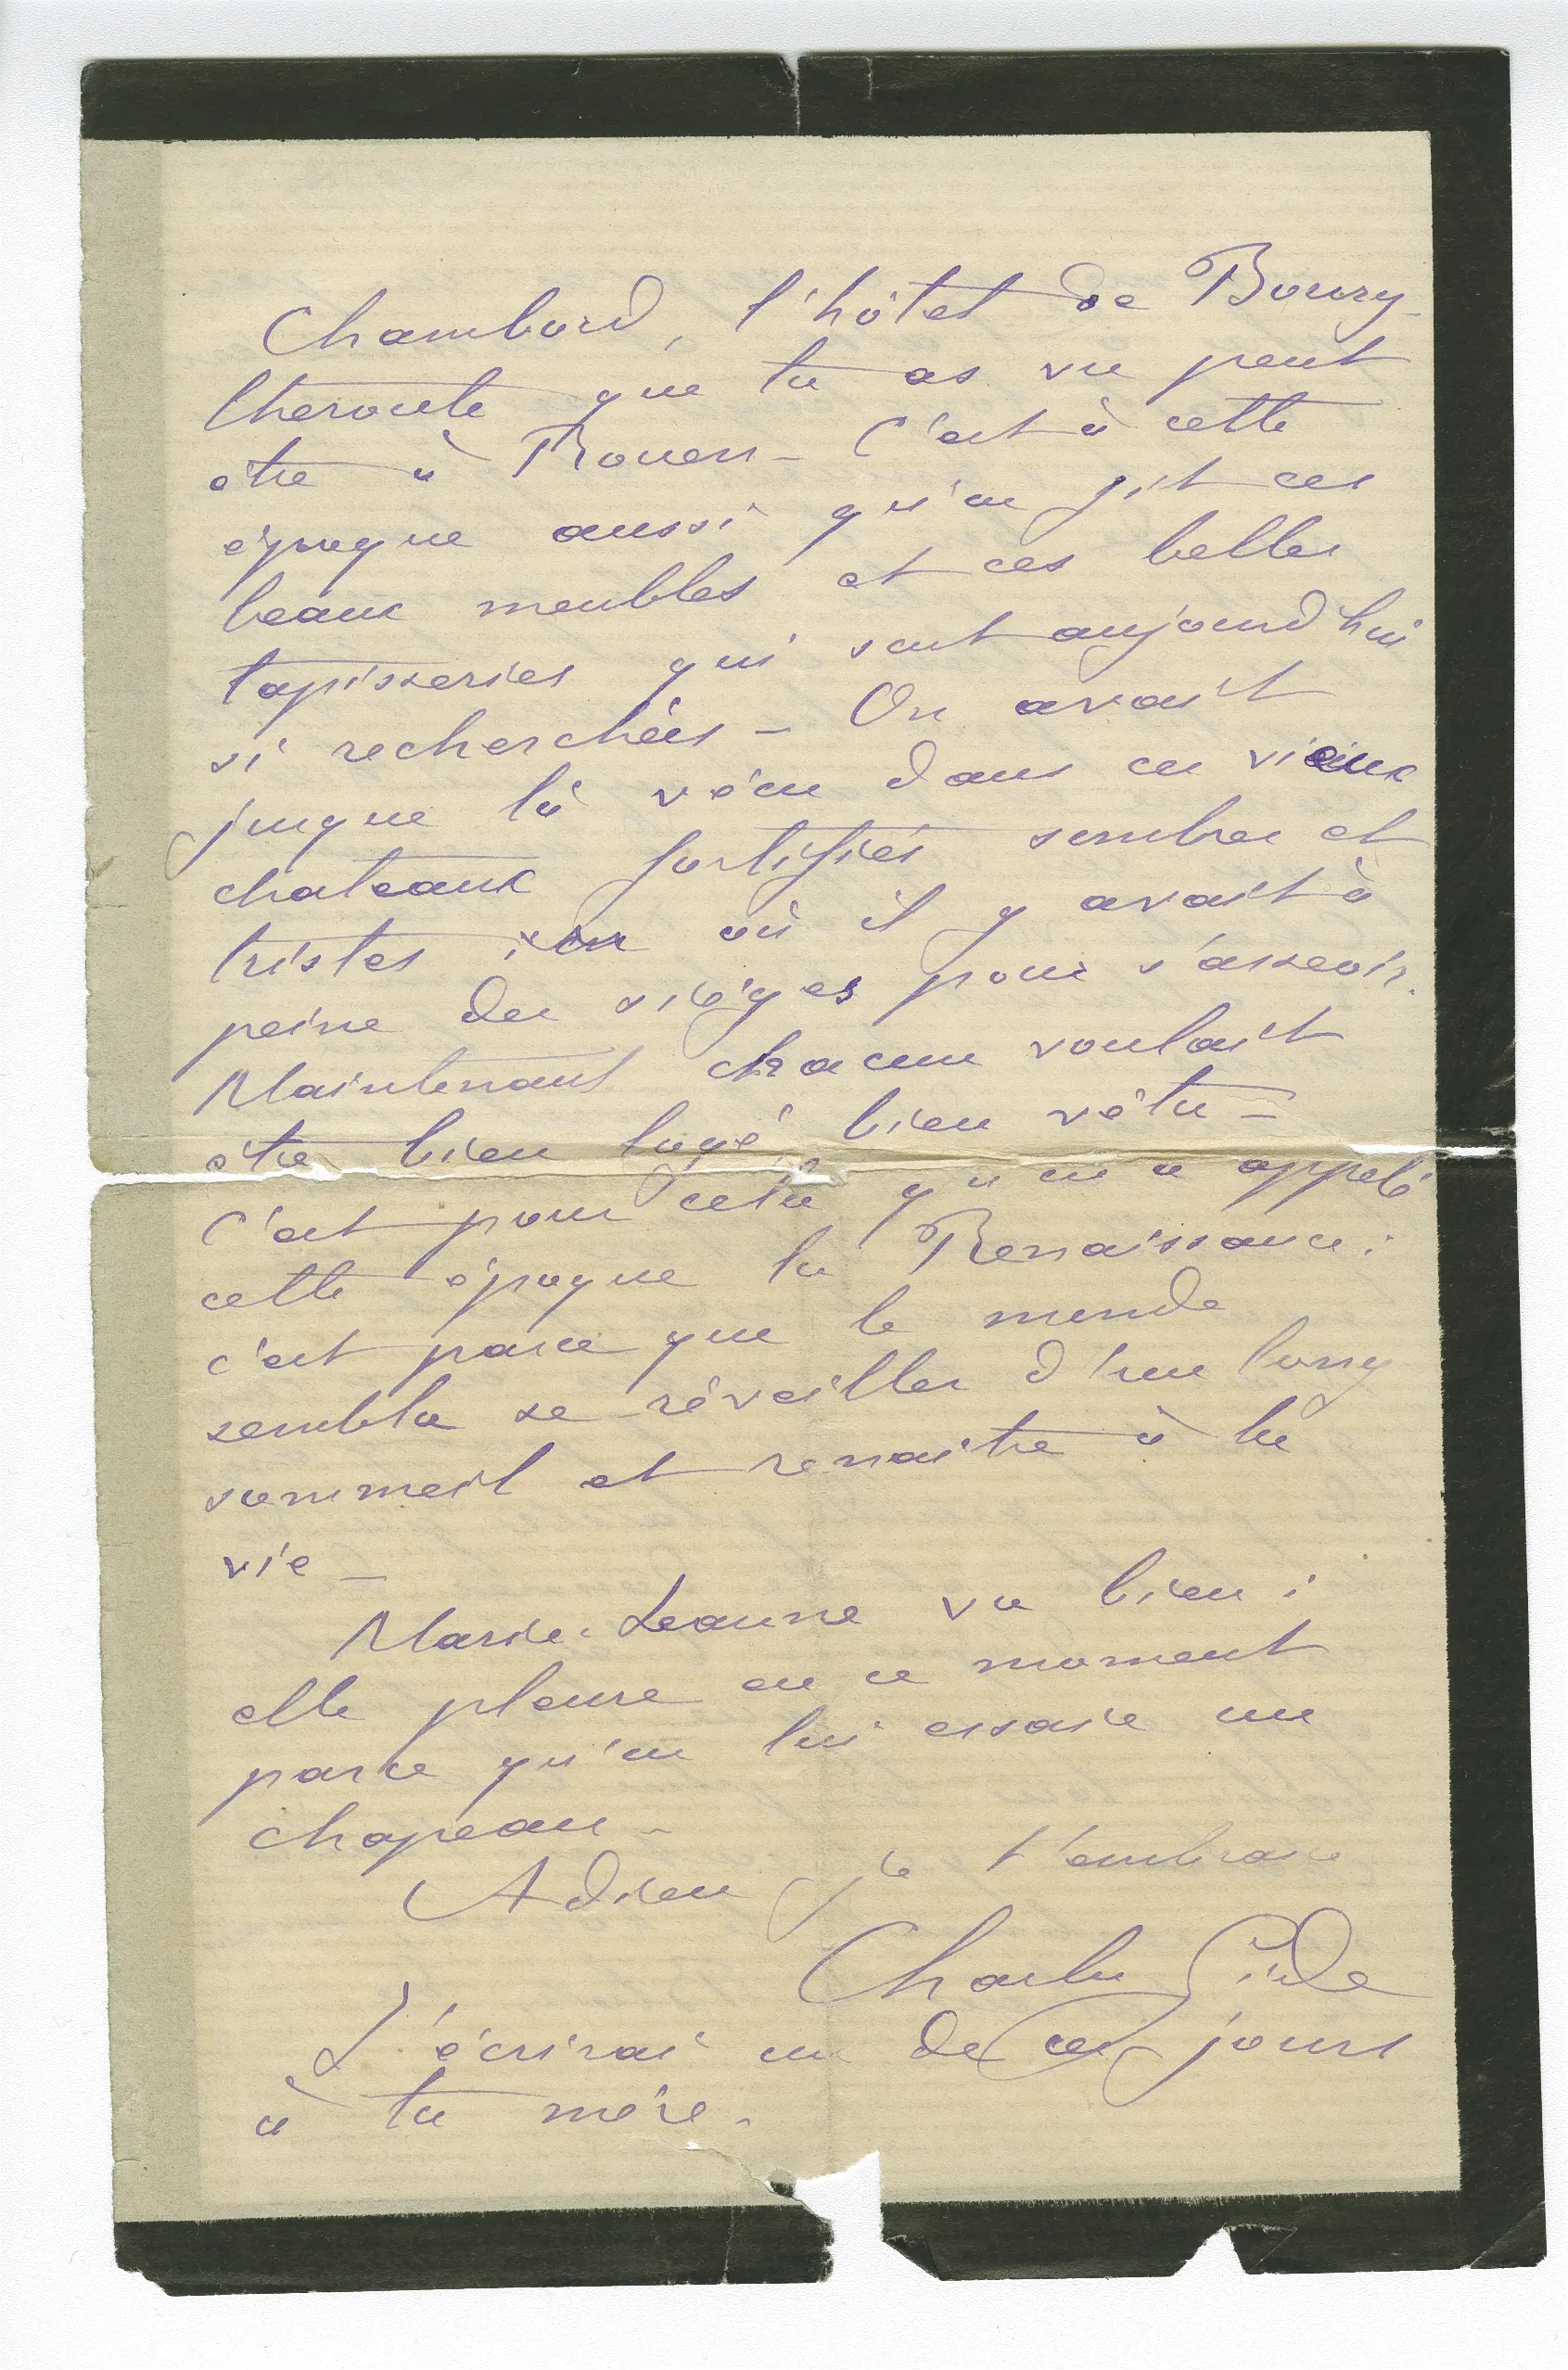 Chambord, l'hôtel de Bourg-
theroute que tu as vu peut
etre à Rouen - C'est à cette
époque aussi qu'on fit ces
beaux meubles et ces belles
tapisseries qui sont aujourd'hui
si recherchées - On avait
jusque là vécu dans ces vieux
chateaux fortifiés sombres et
tristes où il y avait à
peine des sièges pour s'asseoir.
Maintenant chacun voulait
être bien logé, bien vêtu -
C'est pour cela qu'on a appelé
cette époque la Renaissance :
c'est parce que le monde
sembla se réveiller d'un long
sommeil et renaitre à la
vie -
Marie-Jeanne va bien :
elle pleure en ce moment
parce qu'on lui essaie un
chapeau -
Adieu je t'embrasse
Charles Gide
J'écrirai un de ces jours
à ta mère -